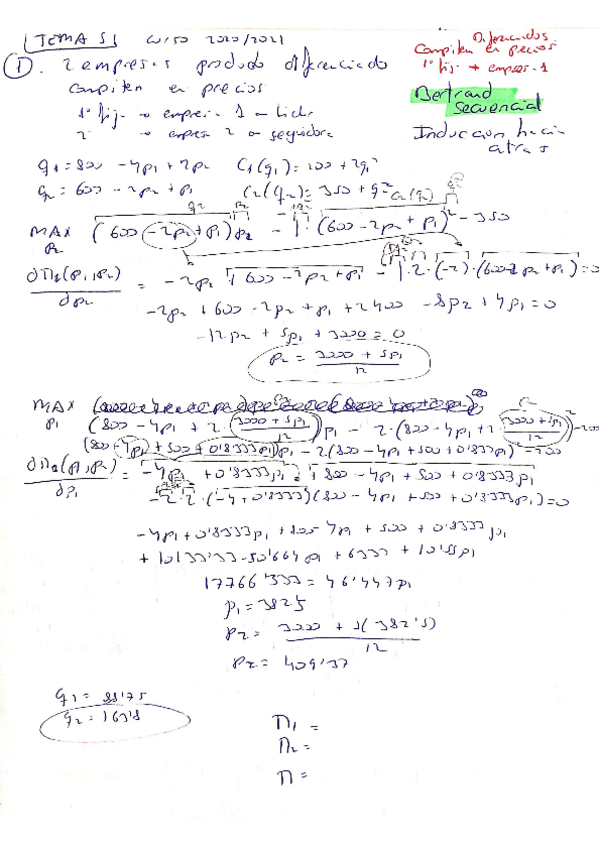 TEMA 5 CURSO 2020/2021
Diferenciados
Compiten en precios
1º fij. → empresa 1
① . 2 empresas producto diferenciado
compiten en precios
1º fij → empresa 1 → lider
2º → empresa 2 → seguidora
Bertrand
Secuencial
Inducción hacia
atras
q1 = 800 - 4p1 + 2p2 C1(q1) = 100 + 2q1²
q2 = 600 - 2p2 + p1 C2(q2) = 350 + q2²
MAX (600 - 2p2 + p1) p2 - 1 · (600 - 2p2 + p1)² - 350
p2
∂Π2(p1,p2) = -2p2 + 600 - 2p2 + p1 - 1·2·(-2)·(600-2p2+p1) = 0
∂p2
-2p2 + 600 - 2p2 + p1 + 2400 - 8p2 + 4p1 = 0
-12p2 + 5p1 + 3000 = 0
p2 = 3000 + 5p1
12
MAX
p1
(800 - 4p1 + 2·(3000 + 5p1 / 12)) p1 - 2·(800 - 4p1 + 2·(3000 + 5p1 / 12))² - 100
(800 - 4p1 + 500 + 0'8333p1) p1 - 2(800 - 4p1 + 500 + 0'833p1)² - 100
= -4p1 + 0'8333p1 + 800 - 4p1 + 500 + 0'8333p1
∂p1
-2·2·(-4+0'8333)(800 - 4p1 + 500 + 0'8333p1) = 0
-4p1 + 0'8333p1 + 800 - 4p1 + 500 + 0'8333p1
+ 10133'33 - 50'664p1 + 6333 + 10'55p1
17766'333 = 46'447p1
p1 = 382'5
p2 = 3000 + 5(382'5)
12
p2 = 409'37
q1 = 88'75
q2 = 163'8
Π1 =
Π2 =
Π =